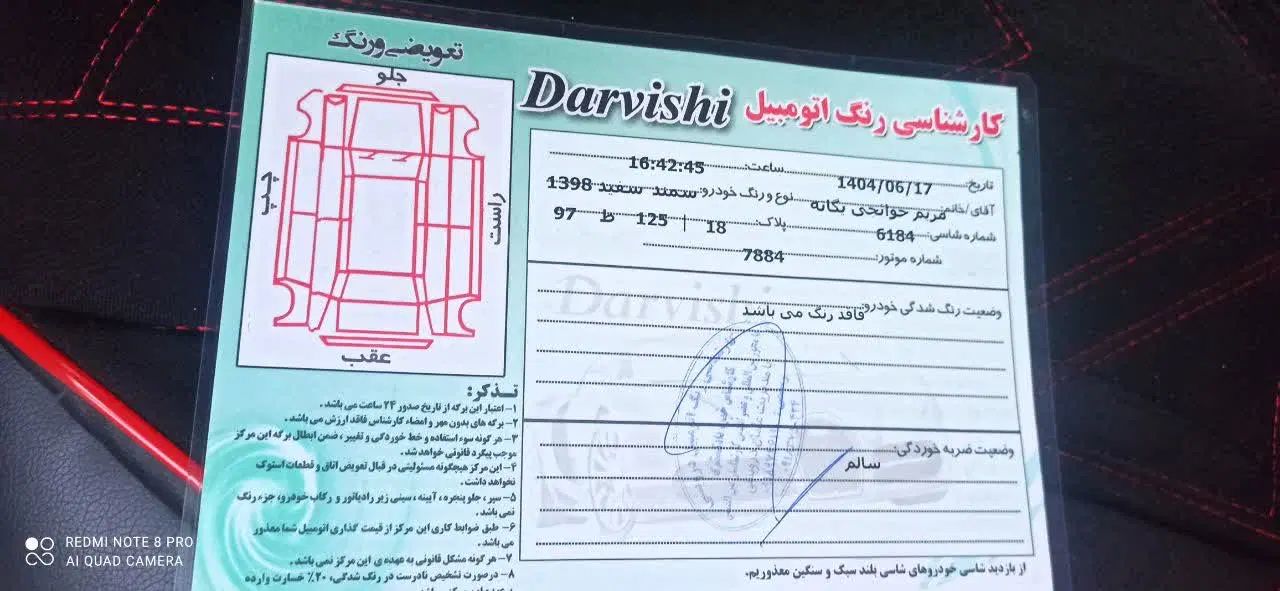 کارشناسی رنگ اتومبیل Darvishi
تاریخ: 1404/06/17 ساعت: 16:42:45
آقای/خانم: مریم خوانچی یگانه نوع و رنگ خودرو: سمند سفید 1398
شماره شاسی: 6184 پلاک: 18 | 125 ط 97
شماره موتور: 7884
Darvishi
وضعیت رنگ شدگی خودرو: فاقد رنگ می باشد
وضعیت ضربه خوردگی: سالم
از بازدید شاسی خودروهای شاسی بلند سبک و سنگین معذوریم.
تعویضی و رنگ
جلو
راست
چپ
عقب
تذکر:
۱- اعتبار این برگه از تاریخ صدور ۲۴ ساعت می باشد.
۲- برگه های بدون مهر و امضاء کارشناس فاقد ارزش می باشد.
۳- هر گونه سوء استفاده و خط خوردگی و تغییر، ضمن ابطال برگه این مرکز
موجب پیگرد قانونی خواهد شد.
۴- این مرکز هیچگونه مسئولیتی در قبال تعویض اتاق و قطعات استوک
نخواهد داشت.
۵- سپر، جلو پنجره، آیینه، سینی زیر رادیاتور و رکاب خودرو، جزء رنگ
نمی باشد.
۶- طبق ضوابط کاری این مرکز از قیمت گذاری اتومبیل شما معذور
می باشد.
۷- هر گونه مشکل قانونی به عهده ی این مرکز نمی باشد.
۸- درصورت تشخیص نادرست در رنگ شدگی، ۲۰٪ خسارت وارده
REDMI NOTE 8 PRO
AI QUAD CAMERA